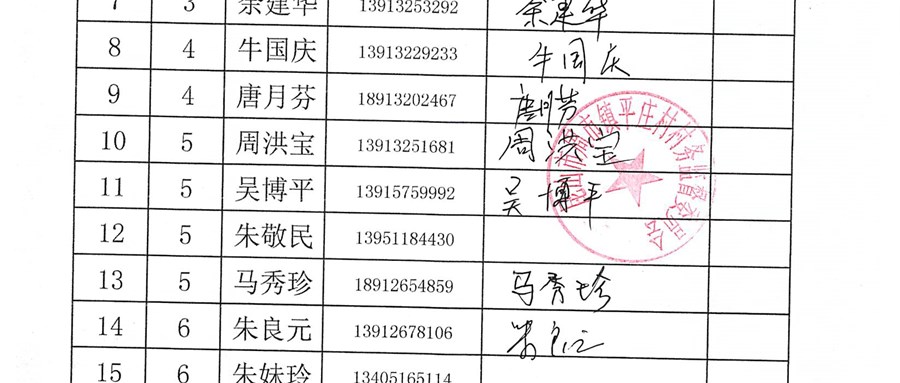 7 3 余建华 13913253292 余建华
8 4 牛国庆 13913229233 牛国庆
9 4 唐月芬 18913202467 唐月芬
10 5 周洪宝 13913251681 周洪宝
11 5 吴博平 13915759992 吴博平
12 5 朱敬民 13951184430
13 5 马秀珍 18912654859 马秀珍
14 6 朱良元 13912678106
15 6 朱妹玲 13405165114
市镇平庄村村务监督委员会